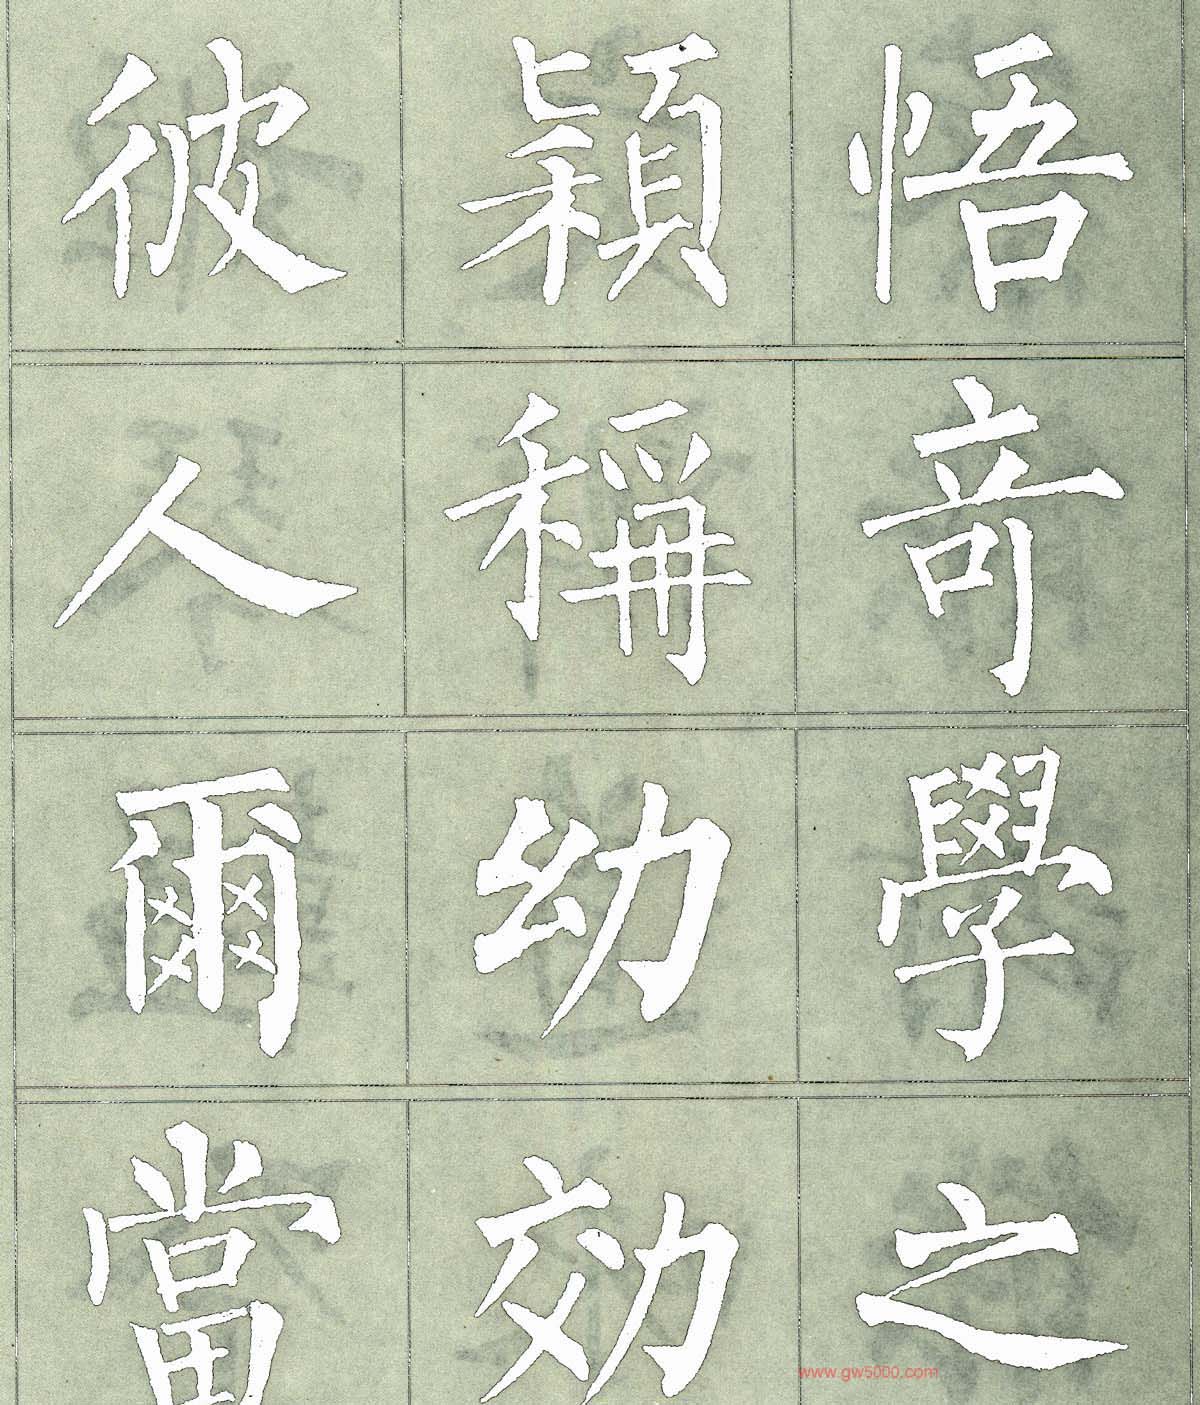 彼穎悟
人稱竒
爾幼學
當効之
www.gw5000.com